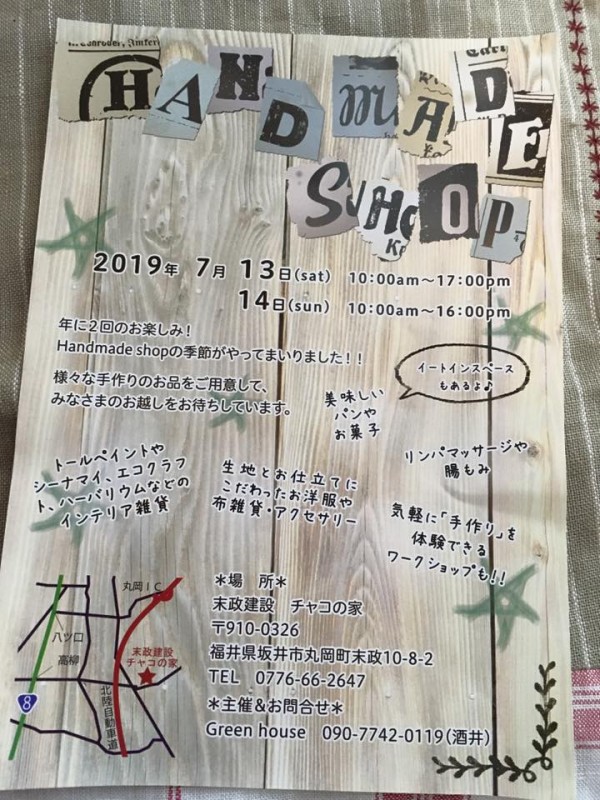 HAND MADE
SHOP
2019年 7月 13日(sat) 10:00am～17:00pm
14日(sun) 10:00am～16:00pm
年に2回のお楽しみ！
Handmade shopの季節がやってまいりました！！
様々な手作りのお品をご用意して、
みなさまのお越しをお待ちしています。
イートインスペース
もあるよ♪
美味しい
パンや
お菓子
トールペイントや
シーナマイ、エコクラフ
ト、ハーバリウムなどの
インテリア雑貨
生地とお仕立てに
こだわったお洋服や
布雑貨・アクセサリー
リンパマッサージや
腸もみ
気軽に「手作り」を
体験できる
ワークショップも!!
丸岡IC
八ツ口
高柳
末政建設
チャコの家
8
北陸自動車道
＊場　所＊
末政建設　チャコの家
〒910-0326
福井県坂井市丸岡町末政10-8-2
TEL 0776-66-2647
＊主催&お問合せ＊
Green house 090-7742-0119(酒井)